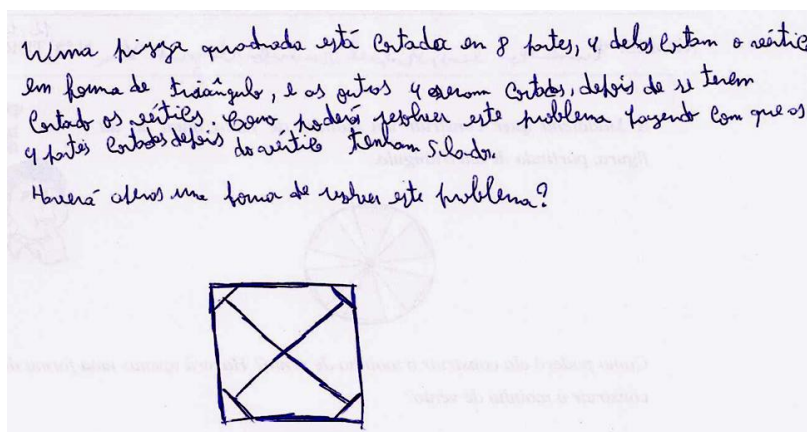 Uma pizza quadrada está cortada em 8 partes, 4 delas cortam o vértice
em forma de triângulo, e as outras 4 eseram cortadas, depois de se terem
cortado os vértices. Como poderá resolver este problema fazendo com que as
4 partes cortadas depois do vértice tenham 5 lados.
Haverá apenas uma forma de resolver este problema?